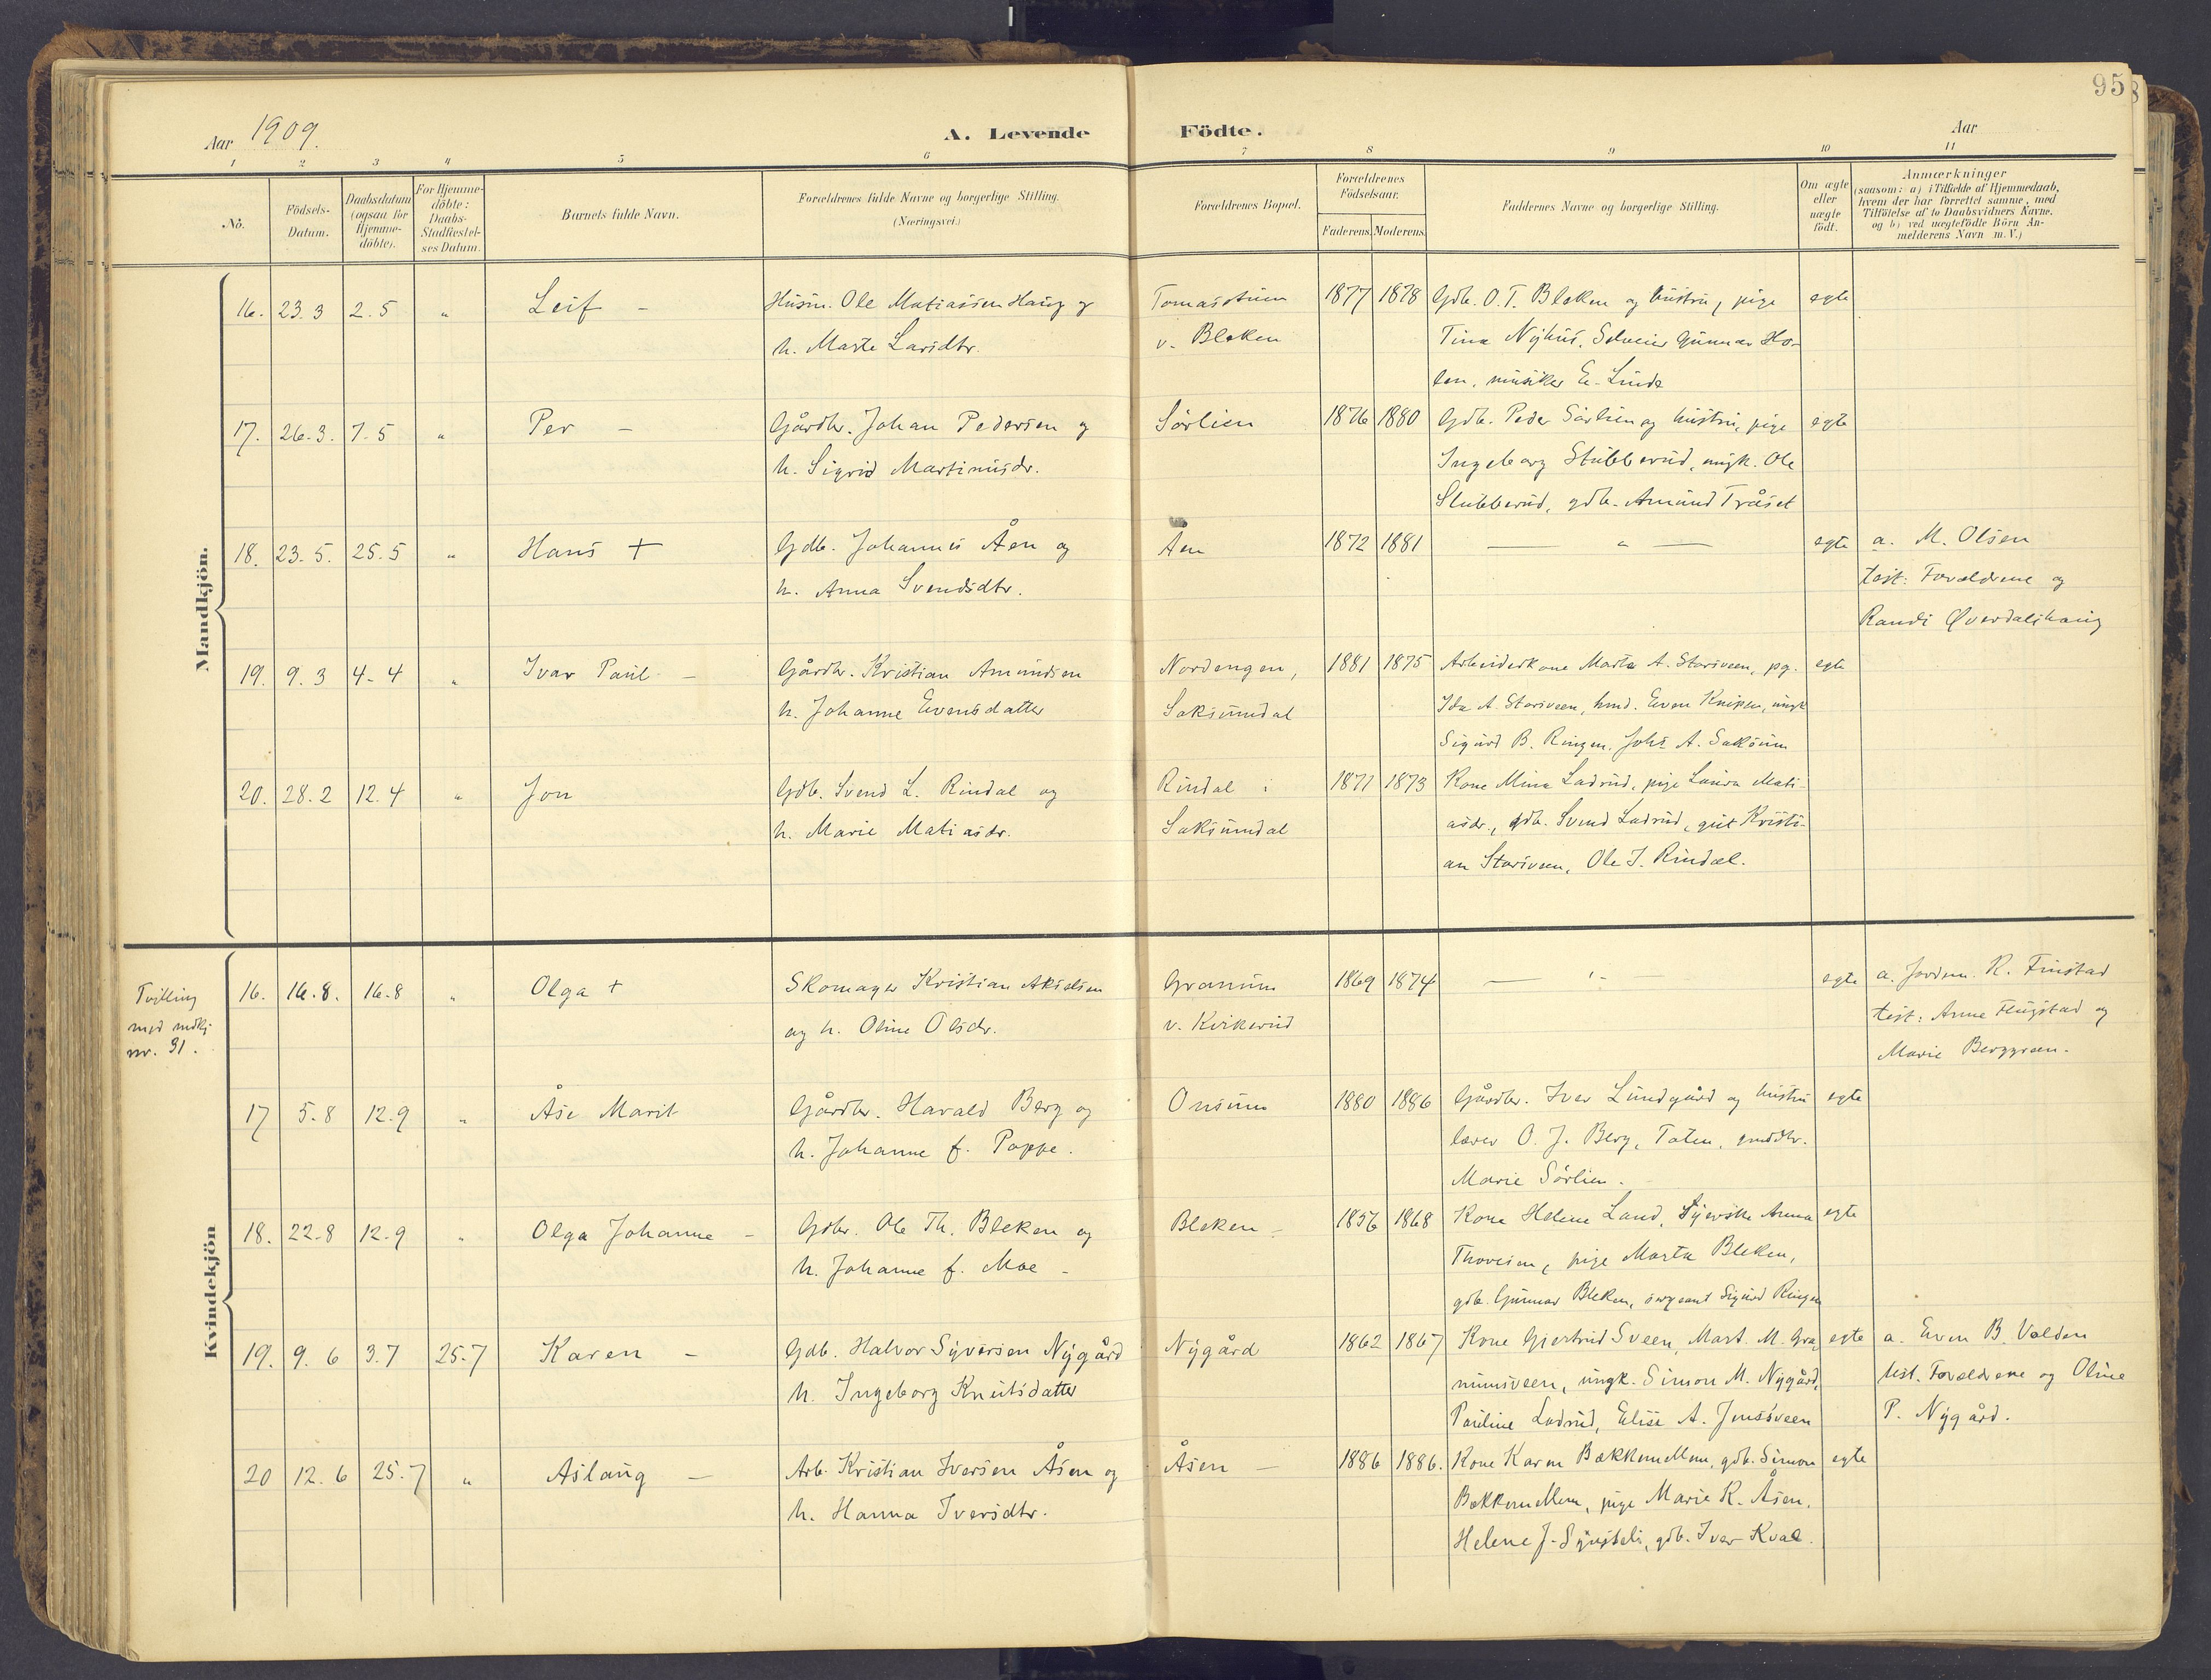 95
Aar 1909.
A. Levende Födte.
Aar
1 2 3 4 5 6 7 8 9 10 11
No.
Födsels-Datum.
Daabsdatum (ogsaa for Hjemmedöbte).
For Hjemmedöbte: Daabs-Stadfæstelses Datum.
Barnets fulde Navn.
Forældrenes fulde Navne og borgerlige Stilling. (Næringsvei.)
Forældrenes Bopæl.
Forældrenes Födselsaar.
Faderens. Moderens.
Faddernes Navne og borgerlige Stilling.
Om ægte eller uægte födt.
Anmærkninger
(saasom: a) i Tilfælde af Hjemmedaab,
hvem der har forrettet samme, med
Tilföielse af to Daabsvidners Navne.
og b) ved uægtefödte Börn An-
melderens Navn m. V.)
Mandkjön.
16. 23.3 2.5 " Leif - Husm. Ole Matiassen Haug og Tomasstuen 1877 1878 Gdb. O. T. Bleken og hustru, pige egte
h. Marte Larsdtr. v. Bleken Tina Nyhus, Selveier Gunnar Ho-
len, musiker E. Linde
17. 26.3. 7.5 " Per - Gårdbr. Johan Pedersen og Sörlien 1876 1880 Gdb. Peder Sörlien og hustru, pige egte
h. Sigrid Martinusdr. Ingeborg Stubberud, ungk. Ole
Stubberud, gdb. Amund Tråset
18. 23.5. 25.5 " Hans + Gdb. Johannes Åen og Åen 1872 1881 — " — egte a. M. Olsen
h. Anna Svendsdtr. test: Forældrene og
Randi Øverdalshaug
19. 9.3 4-4 " Ivar Paul - Gårdbr. Kristian Amundsen Nordengen, 1881 1875 Arbeiderkone Marta A. Storsveen, pg. egte
h. Johanne Evensdatter Saksumdal Ida A. Storsveen, hmd. Even Knipen, ungk
Sigurd B. Ringen, Johs A. Saksum
20. 28.2 12.4 " Jon Gdb. Svend L. Rindal og Rindal i 1871 1873 Kone Mina Ladrud, pige Laura Mati-
h. Marie Matiasdr. Saksumdal asdr., gdb. Svend Ladrud, gut Kristi-
an Storsveen, Ole J. Rindal.
Kvindekjön
Tvilling
med mdkj
nr. 31.
16. 16.8. 16.8 " Olga + Skomager Kristian Akselsen Granum 1869 1874 — " — egte a. Jordm. R. Finstad
og h. Oline Olsdr. v. Kvikerud test: Anne Flugstad og
Marie Berggreen.
17 5.8 12.9 " Åse Marit Gårdbr. Harald Berg og Onsum 1880 1886 Gårdbr. Iver Lundgård og hustru egte
h. Johanne f. Poppe. lærer O. J. Berg, Toten, gmddtr.
Marie Sörlien.
18. 22.8 12.9 " Olga Johanne - Gdbr. Ole Th. Bleken og Bleken - 1856 1868 Kone Helene Land, Syerske Anna egte
h. Johanne f. Moe - Thoresen, pige Marta Bleken,
gdb. Gunnar Bleken, sergeant Sigurd Ringen
19. 9.6 3.7 25.7 Karen - Gdb. Halvor Syversen Nygård Nygård 1862 1867 Kone Gjertrud Sveen, Mart. M. Gra egte a. Even B. Volden
h. Ingeborg Knutsdatter numsveen, ungk. Simon M. Nygård, test. Forældrene og Oline
Pauline Ladrud, Elise A. Jonssveen P. Nygård.
20 12.6 25.7 " Aslaug - Arb. Kristian Iversen Åsen og Åsen - 1886 1886. Kone Karen Bækkemellem, gdb. Simon egte
h. Hanna Iversdtr. Bækkemellem, pige Marie K. Åsen,
Helene J. gdb. Iver Kval.